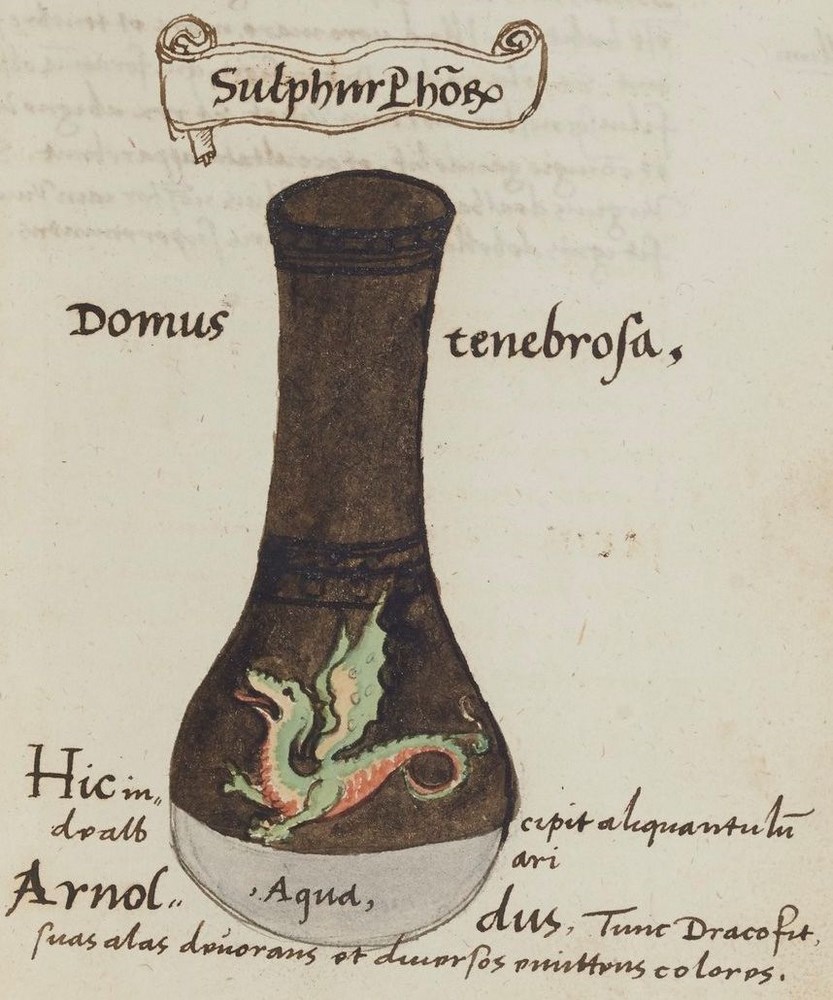 Sulphur Phōrꝝ
Domus tenebroſa,
Hic in„ cipit aliquantulū
dealb ari
Arnol„ dus, Tunc Draco fit,
, Aqua,
ſuas alas deuorans et diuerſos emittens colores.